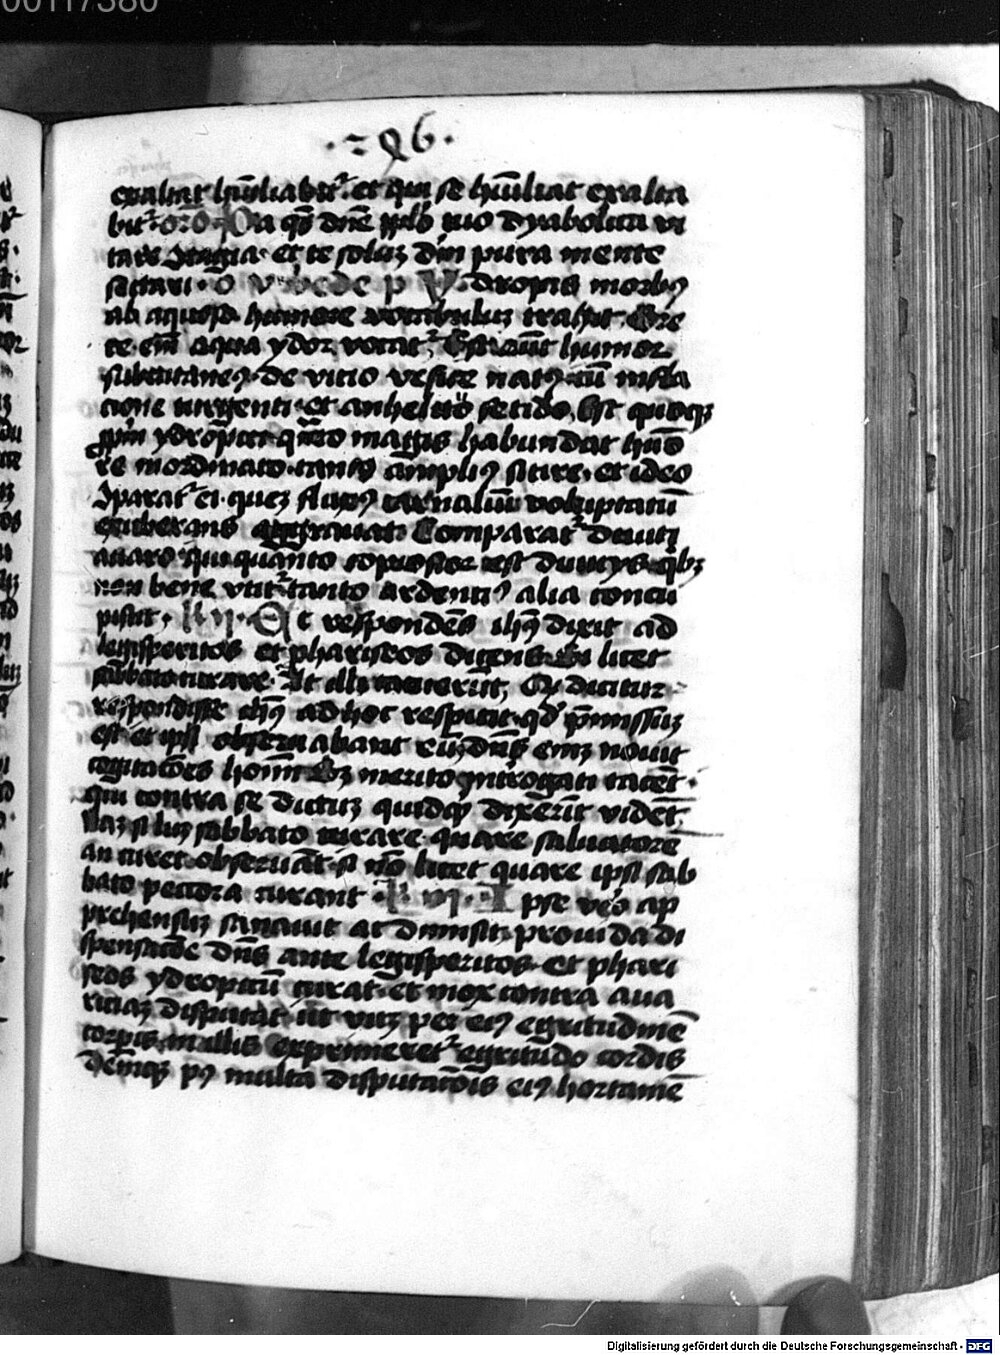 00117380
· 296 ·
exaltat hūiliabit᷑. et qui se hūiliat exalta
bit᷑ Oro Da qs dn̄e pplo tuo dyabolica vi
tare ꝯtagia. et te soluȝ dm̄ pura mente
sectari. O v bede p Ydropis morbꝯ
ab aquoso humore vocabuluȝ trahit. Gre
ce em̄ aqua ydor vocat᷑ Est aūt humor
subcutaneꝯ. de vicio vesice natꝯ cū infla
cione turgenti. et anhelitu fetido. Est quoqȝ
ppm̄ ydropici qnto magis habundat humo
re inordinato. tanto ampliꝯ sitire. et ideo
ꝯparat᷑ ei queȝ fluxꝯ carnaliū voluptatū
exuberans aggrauat. Comparat᷑ diuiti
auaro qui quanto copiosior est diuicijs. qbȝ
non bene vtit᷑ tanto ardentiꝯ alia concu
piscit. Et respondēs ihꝯ dixit ad
legisperitos et phariseos dicens. Si licet
sabbato curare. At illi tacuerūt. Qd dicitur
respondisse ihꝯ ad hoc respicit. qd p̄missuȝ
est et ipsi obseruabant euȝ. dns em̄ nouit
cogitacōes hoīm Sȝ merito introgati tacēt.
qui contra se dictuȝ quidqd dixerīt vidēt.
Naȝ si licȝ sabbato curare. quare saluatorē
an curet obseruāt. si nō licet quare ipsi sab
bato peccora curant. Ipse vero ap
prehensuȝ sanauit ac dimisit. prouida di
spensacōe dns ante legisperitos et phari
seos ydropicū curat. et mox contra aua
riciaȝ disputat ut viȝ per eiꝯ egritudinē
corpis in illis exprimeret᷑ egritudo cordis
Deniqȝ pꝯ multa disputacōis eiꝯ hortamē
Digitalisierung gefördert durch die Deutsche Forschungsgemeinschaft - DFG